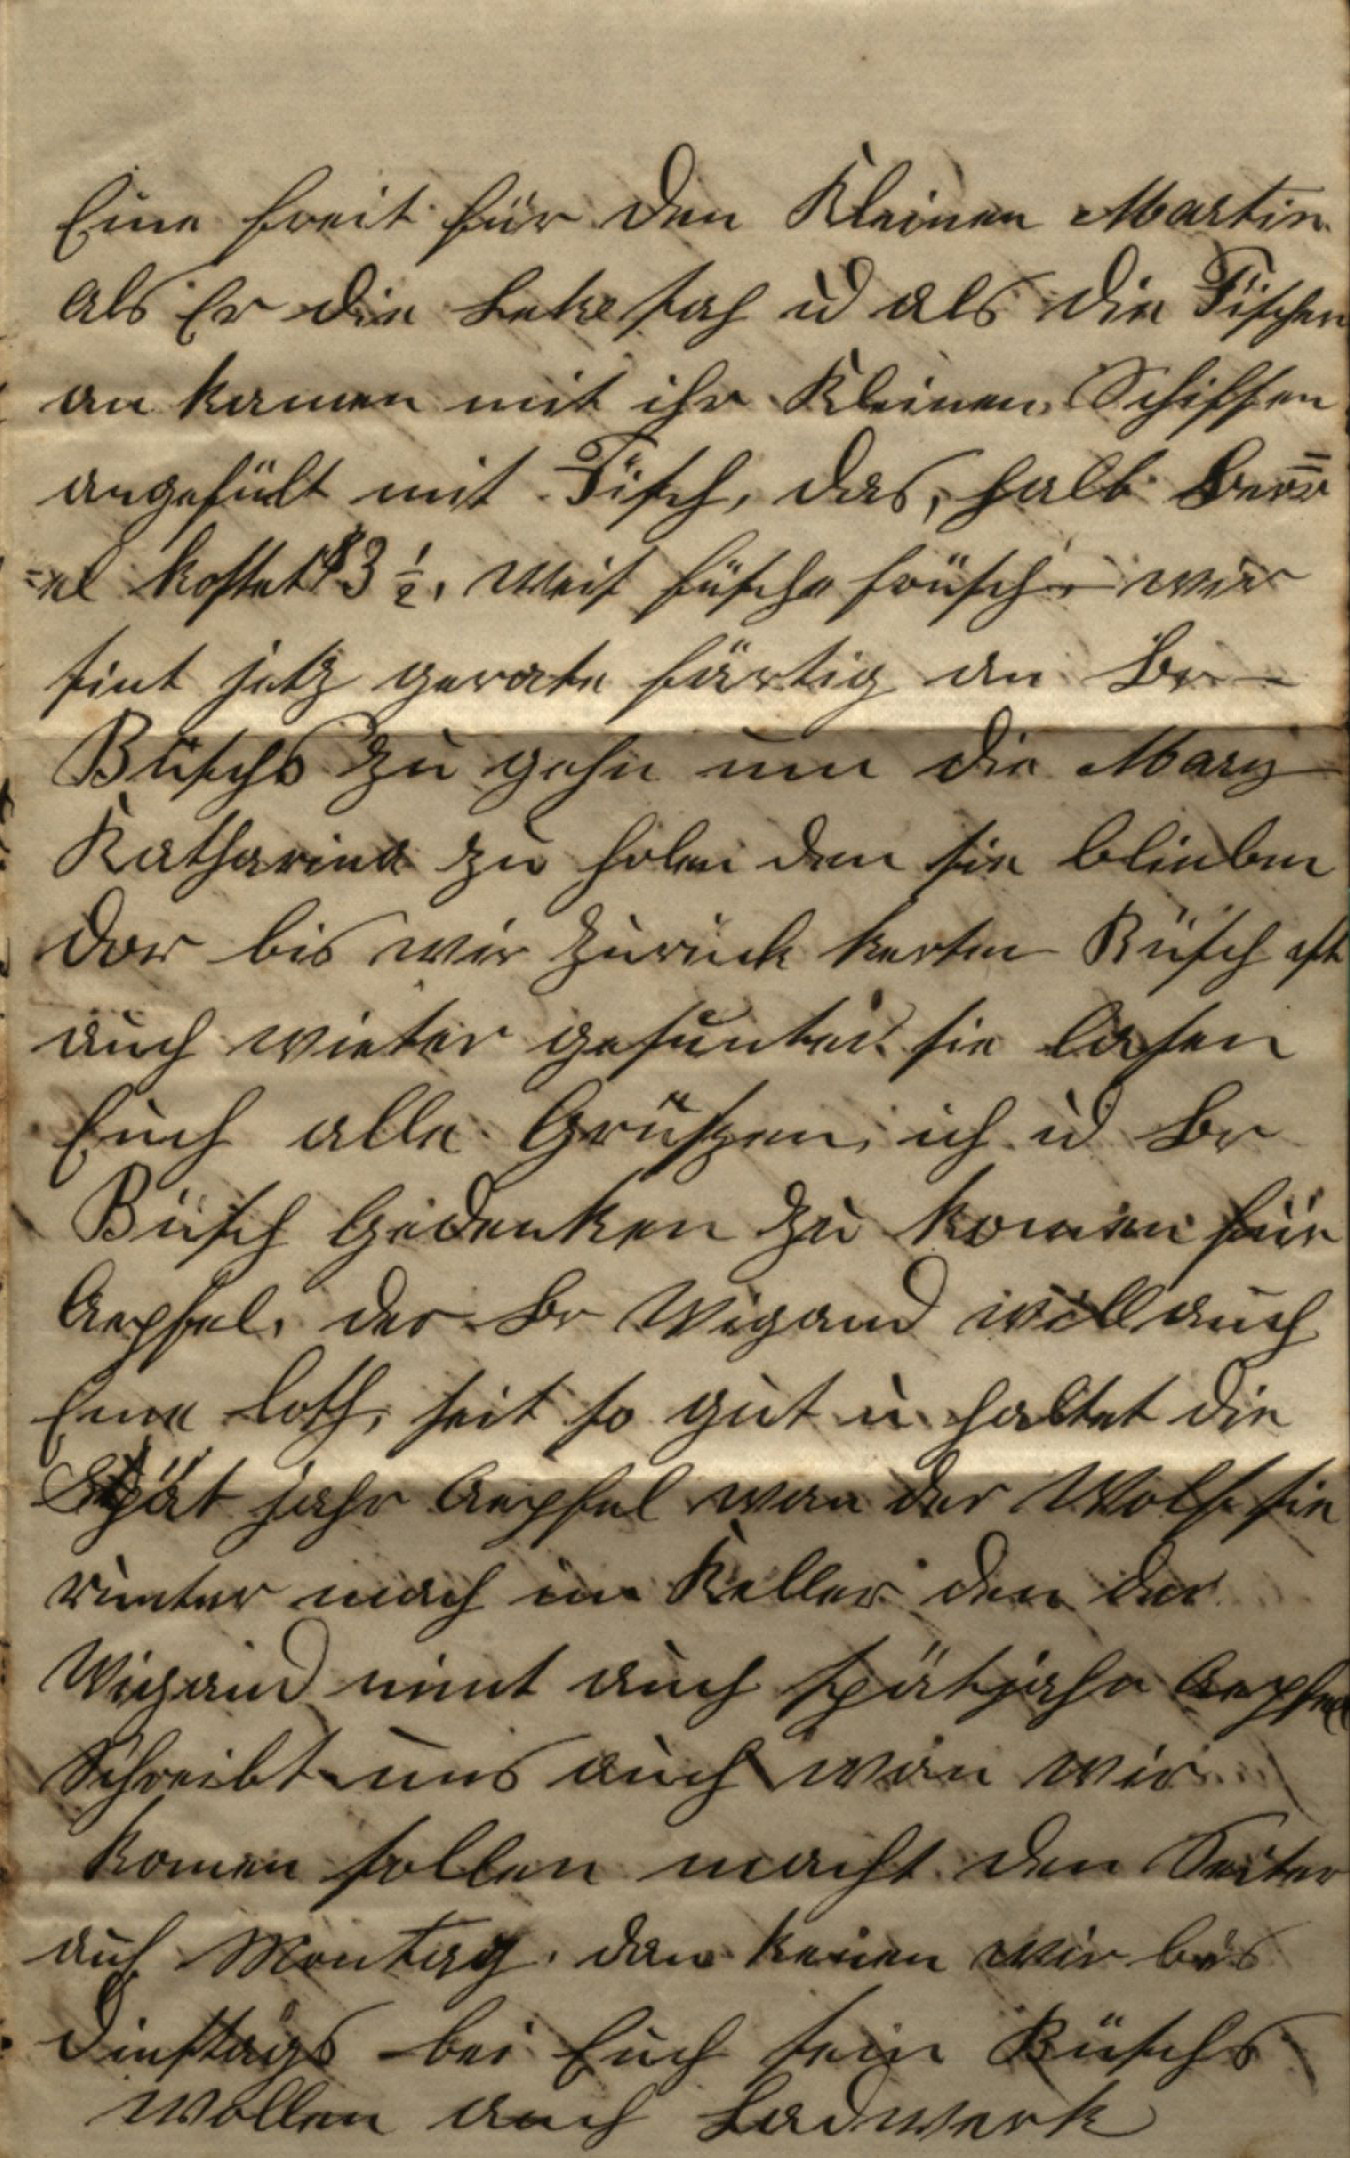 Eine freit für den Kleinen Martin
als Er die Leke sah u als die Fischer
an kamen mit ihr Kleinen Schiffen
angefült mit Fisch, das, halb Berr=
=el kostet $3 ½. Weis füsche früsch. wir
sint jetz gerate färtig an Br
Büschs zu gehn um die Mary
Katharina zu holen den sie blieben
dor bis wir zurück kerten Büsch ist
auch wieter gesunter. sie lasen
Euch alle Grüßen, ich u Br
Büsch Gedenken zu komen für
Aepfel. der Br Wigand will auch
Eine loth, seit so gut u haltet die
Spät jahr Aepfel wan der Wolf sie
runter mach im Keller den der
Wigand nimt auch spätjahr Aepfel
Schreibt uns auch wan wir
komen sollen macht den
auf Montag. dan kenen wir bis
Dinstags bei Euch sein Büschs
wollen auch Ladwerk